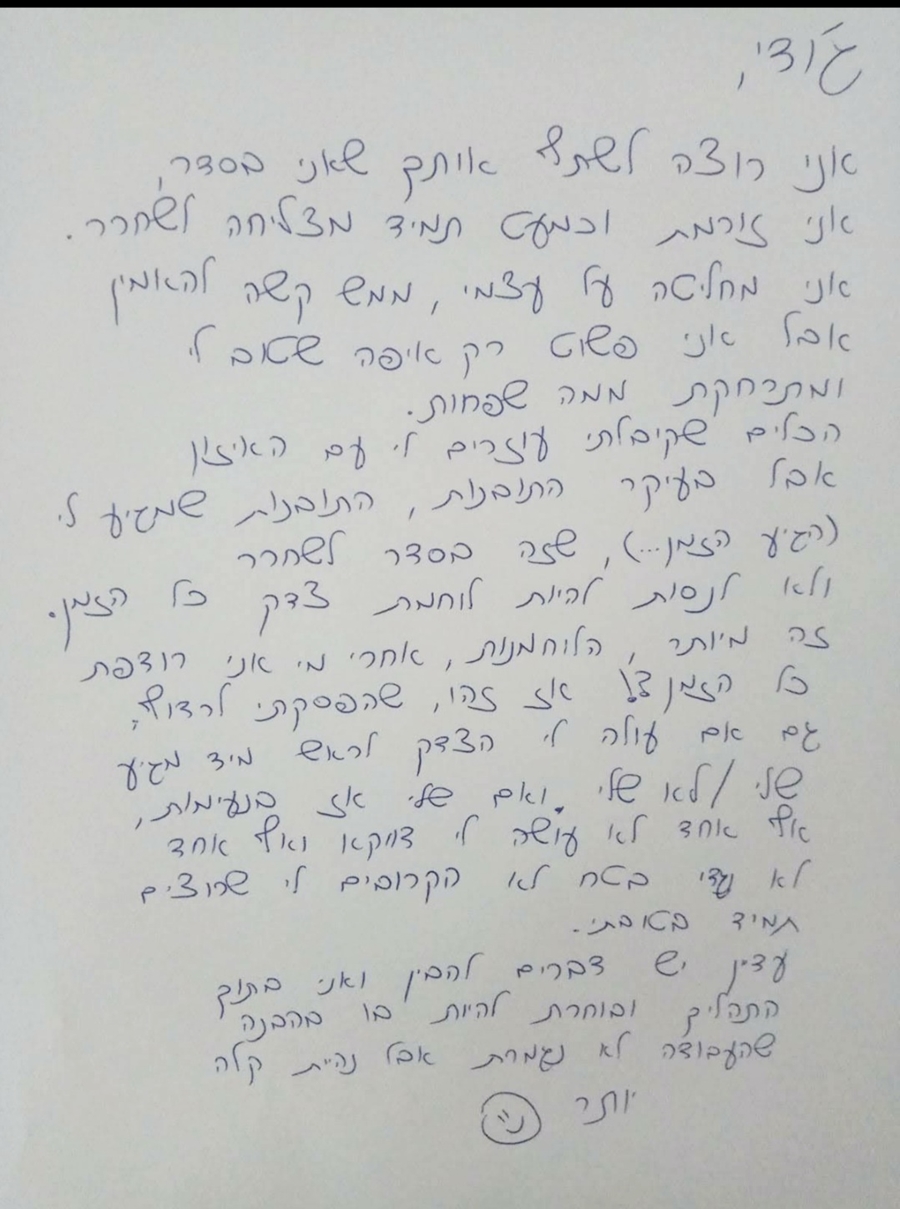 ג'ודי,
אני רוצה לשתף אותך שאני בסדר,
אני זורמת וכמעט תמיד מצליחה לשחרר.
אני מחליטה על עצמי, ממש קשה להאמין
אבל אני פשוט רק איפה שטוב לי
ומתרחקת ממה שפחות.
הכלים שקיבלתי עוזרים לי עם האיזון
אבל בעיקר התובנות, התובנות שמגיע לי
(הגיע הזמן...), שזה בסדר לשחרר
ולא לנסות להיות לוחמת צדק כל הזמן.
זה מיותר, הלוחמנות, אחרי מי אני רודפת
כל הזמן?! אז זהו, שהפסקתי לרדוף,
גם אם עולה לי הצדק לראש מיד מגיע
שלי/לא שלי ואם שלי אז בנעימות,
אף אחד לא עושה לי דווקא ואף אחד
לא נגדי בטח לא הקרובים לי שרוצים
תמיד בטובתי.
עדיין יש דברים להבין ואני בתוך
התהליך ובוחרת להיות בו בהבנה
שהעבודה לא נגמרת אבל נהיית קלה
יותר